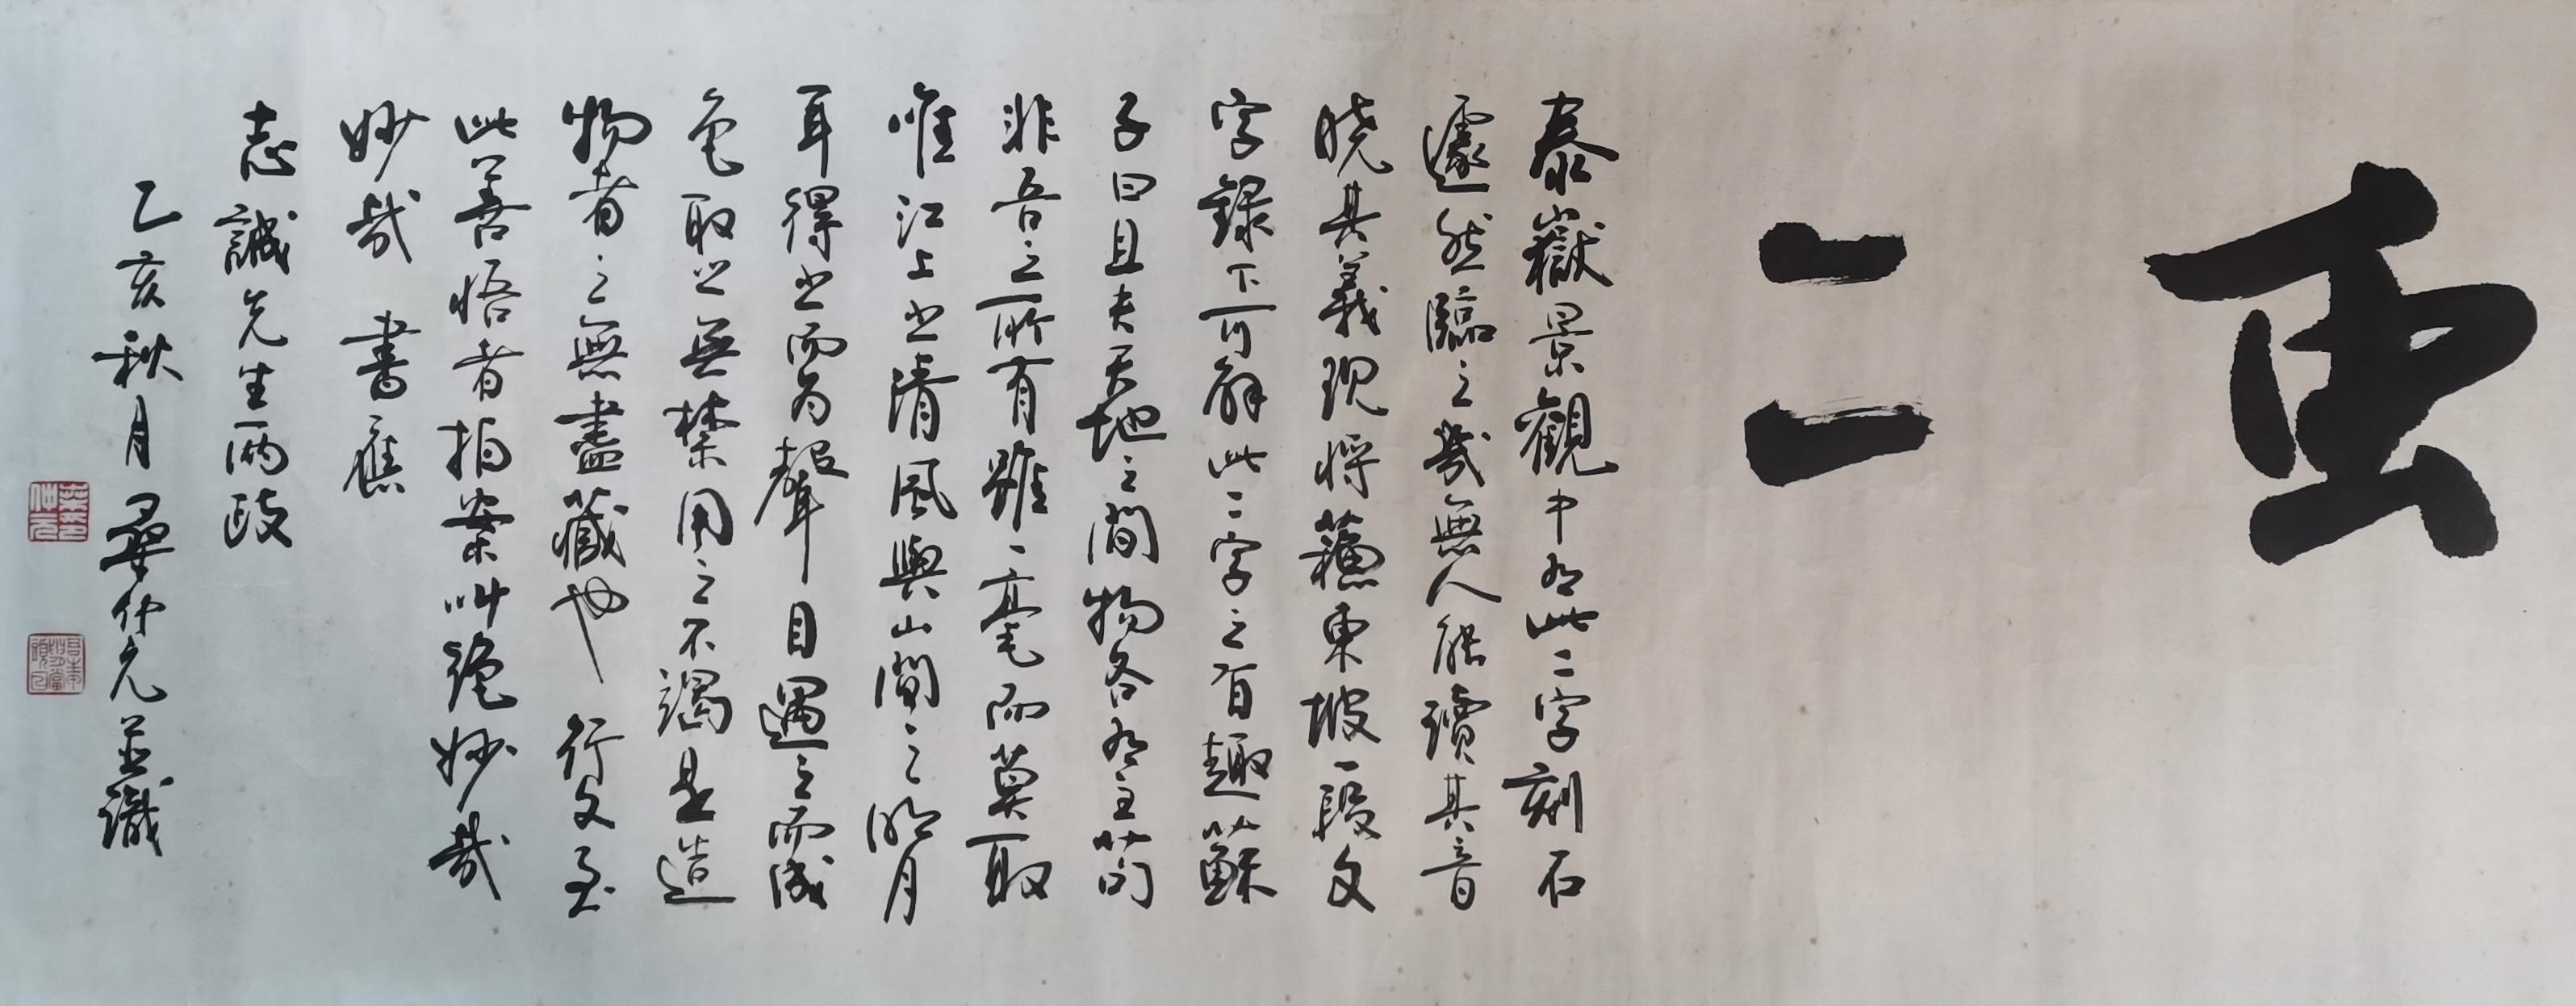 虫二
泰嶽景觀中有此二字刻石
遽然臨之幾無人能讀其音
曉其義現將蘓東坡一段文
字錄下可解此二字之旨趣蘇
子曰且夫天地之間物各有主苟
非吾之所有雖一毫而莫取
唯江上之清風與山間之明月
耳得之而為聲目遇之而成
色取之無禁用之不竭是造
物者之無盡藏也 行文至
此善悟者拍案叫絕妙哉
妙哉 書應
志誠先生兩政
乙亥秋月 仲元並識